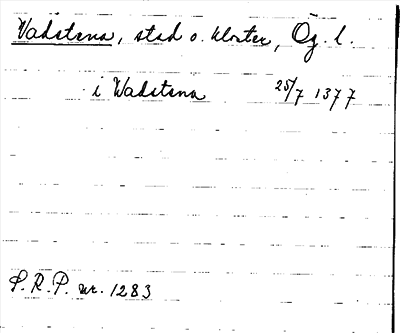 Vadstena, stad o. kloster, Ög. l.
i Wadstena 25/7 1377
P.R.P. nr. 1283